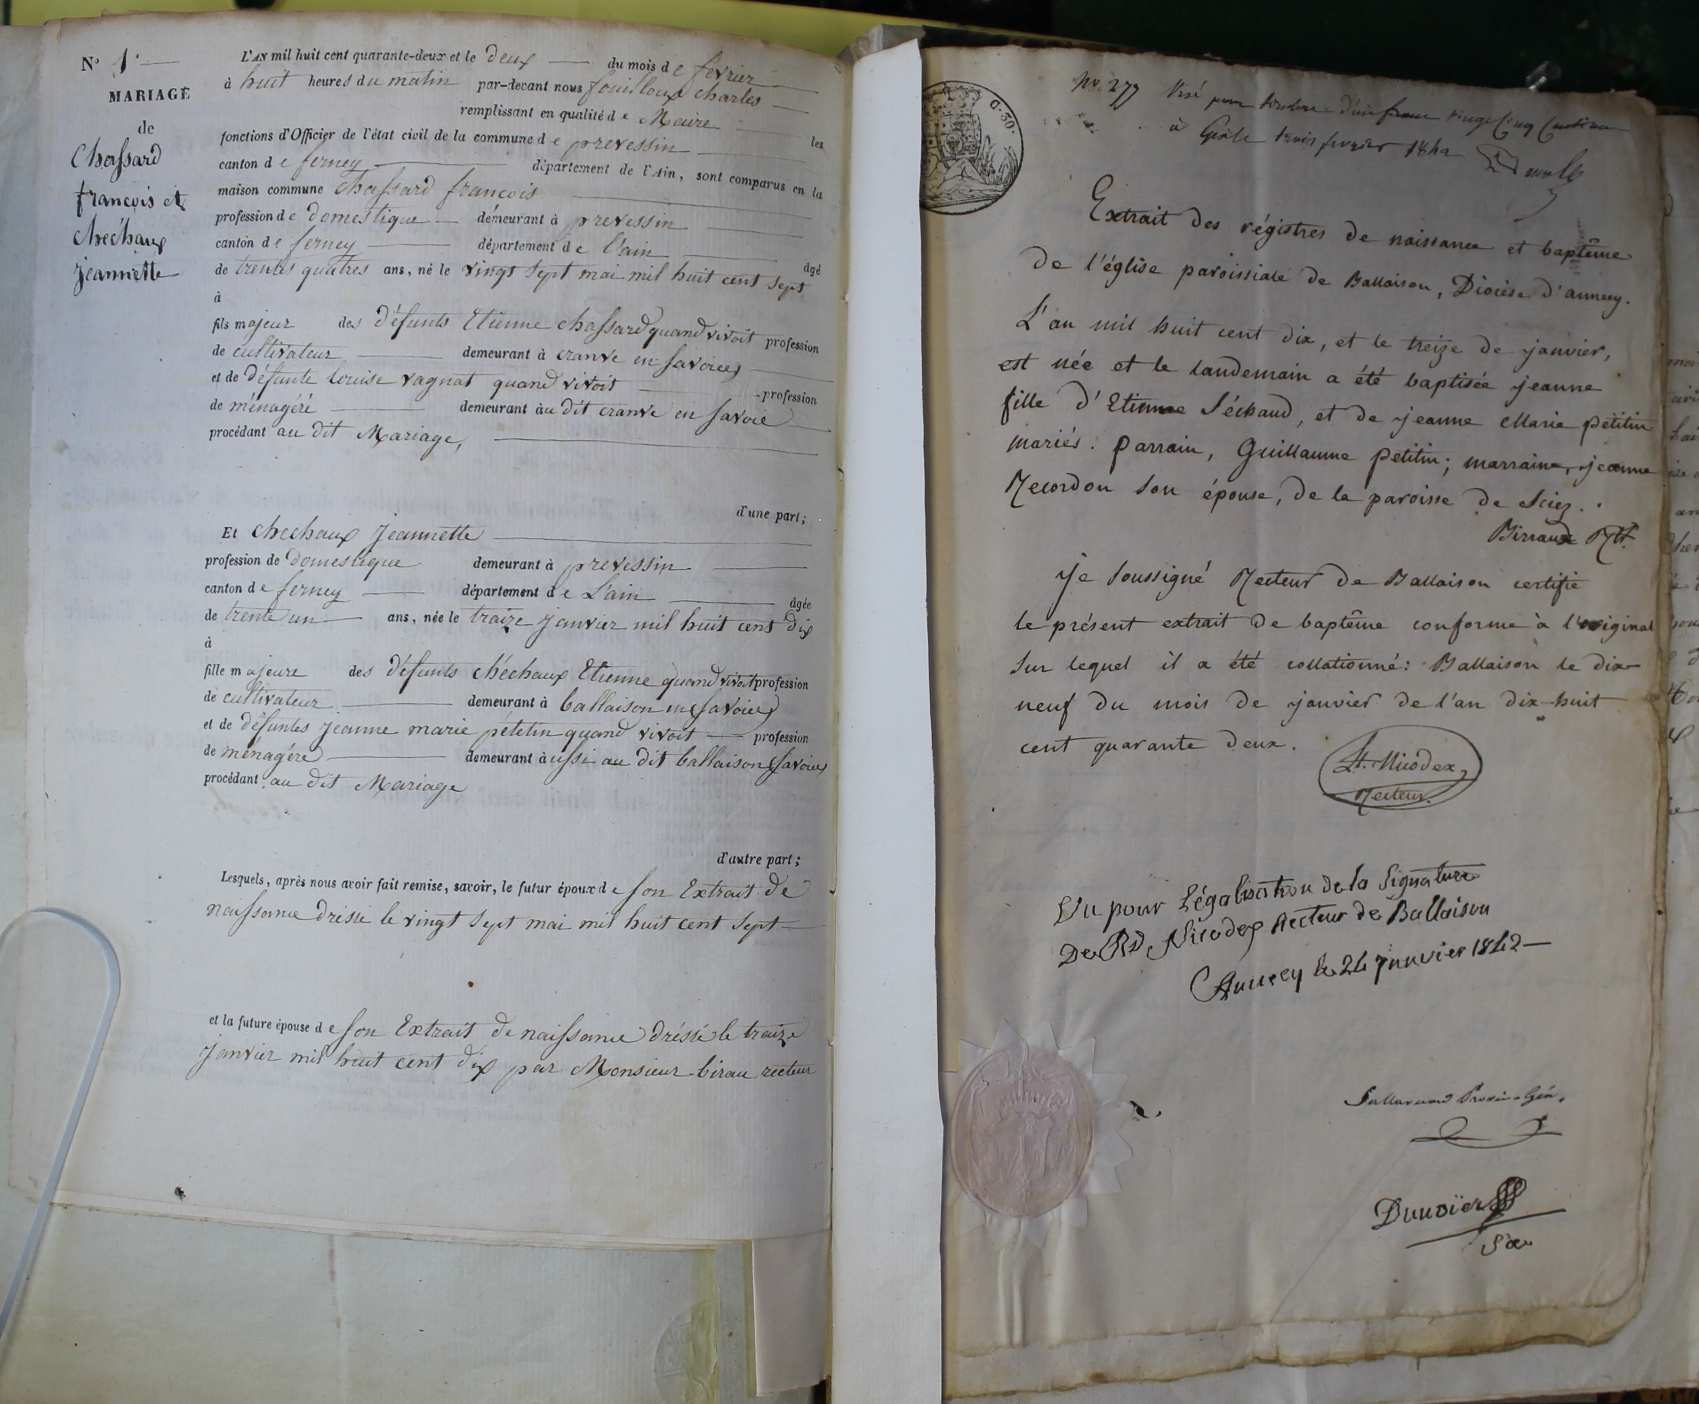 N° 1.
MARIAGE
de
Chassard
francois et
chéchaux
jeannette
L'AN mil huit cent quarante-deux et le deux du mois de fevrier
à huit heures du matin par-devant nous fouilloux charles
remplissant en qualité de Maire les
fonctions d'Officier de l'état civil de la commune de prevessin
canton de ferney département de l'Ain, sont comparus en la
maison commune chassard francois
profession de domestique demeurant à prevessin
canton de ferney département de l'ain âgé
de trentes quatres ans, né le vingt sept mai mil huit cent sept
à
fils majeur des défunts Etienne chassard quand vivoit profession
de cultivateur demeurant à cranve en savoies
et de défunte louise vagnat quand vivoit profession
de ménagéré demeurant au dit cranve en savoie
procédant au dit Mariage,
d'une part;
Et chechaux jeannette
profession de domestique demeurant à prevessin
canton de ferney département de L'ain âgée
de trente un ans, née le traize janvier mil huit cent dix
à
fille majeure des défunts chéchaux Etienne quand vivoit profession
de cultivateur demeurant à ballaison en (savoies)
et de défuntes jeanne marie pétetin quand vivoit profession
de ménagére demeurant aussi au dit ballaison (savoies)
procédant au dit Mariage
d'autre part;
Lesquels, après nous avoir fait remise, savoir, le futur époux de son Extrait de
naissance dréssé le vingt sept mai mil huit cent sept
et la future épouse de son Extrait de naissance dréssé le traize
janvier mil huit cent dix par Monsieur birau recteur
No. 277 Visé pour timbre d'un franc vingt cinq centimes
à trois fevrier 1842
Extrait des régistres de naissance et baptême
de l'église paroissiale de Ballaison, Diocèse d'annecy.
L'an mil huit cent dix, et le treize de janvier,
est née et le landemain a été baptisée jeanne
fille d'Etienne Séchaud, et de jeanne Marie petitin
mariés: parrain, Guillaume petitin; marraine, jeanne
Recordon son épouse, de la paroisse de Sciez.
Birraud Rtr.
je soussigné Recteur de Ballaison certifie
le présent extrait de baptême conforme à l'original
sur lequel il a été collationné: Ballaison le dix
neuf du mois de janvier de l'an dix-huit
cent quarante deux.
Nicodex,
Recteur.
Vu pour Légalisation de la Signature
De Rd. Nicodex Recteur de Ballaison
Annecy le 24 janvier 1842